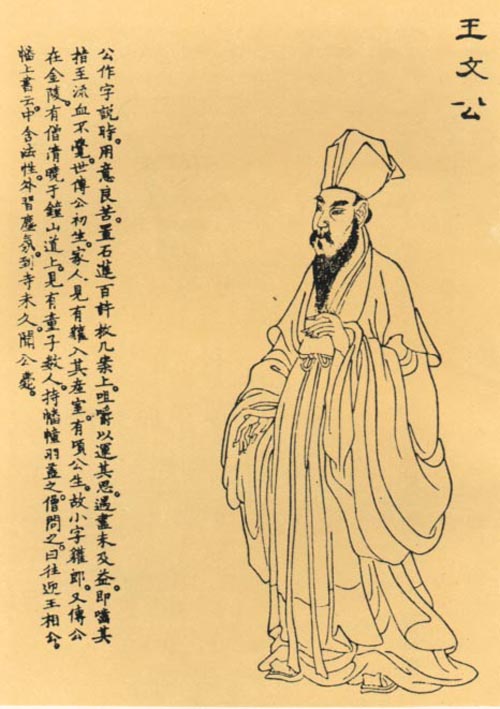 王文公
公作字說時。用意良苦。置石蓮百許枚几案上。咀嚼以運其思。遇盡未及益。即嚙其
指至流血不覺。世傳公初生。家人見有獾入其產室。有頃公生。故小字獾郎。又傳公
在金陵。有僧清曉于鐘山道上。見有童子數人。持幡幢羽蓋之。僧問之。曰往迎王相公。
幡上書云。中含法性。外習塵氛。到寺未久。聞公薨。